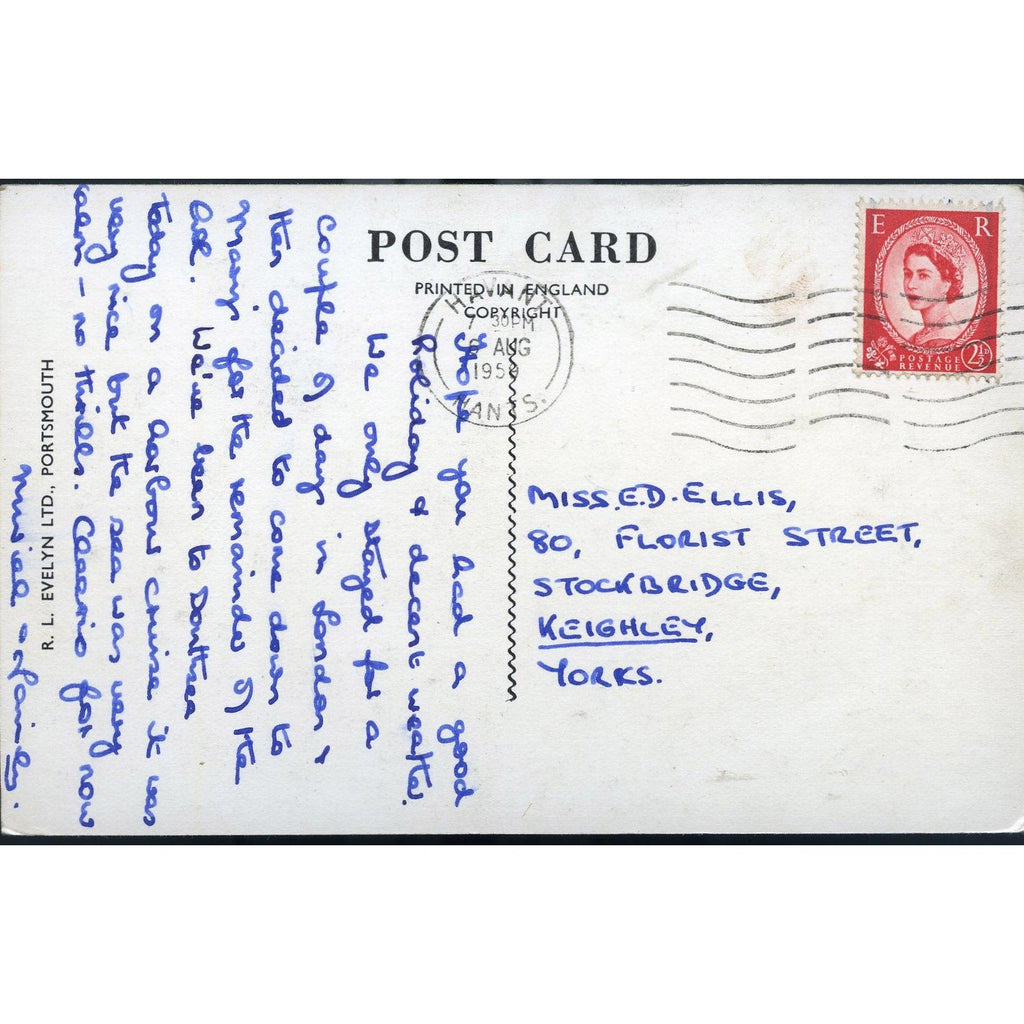 POST CARD
PRINTED IN ENGLAND
COPYRIGHT
HAVANT
7 30PM
6 AUG
1959
HANTS.
E R
POSTAGE
REVENUE
2½D
I hope you had a good
holiday & decent weather.
We only stayed for a
couple of days in London &
then decided to come down to
Mary's for the remainder of the
We've been to
today on a harbour cruise it was
very nice but the sea was very
calm - no thrills. Cheerio for now
Muriel & family.
R. L. EVELYN LTD., PORTSMOUTH
MISS. E.D. ELLIS,
80, FLORIST STREET,
STOCKBRIDGE,
KEIGHLEY,
YORKS.